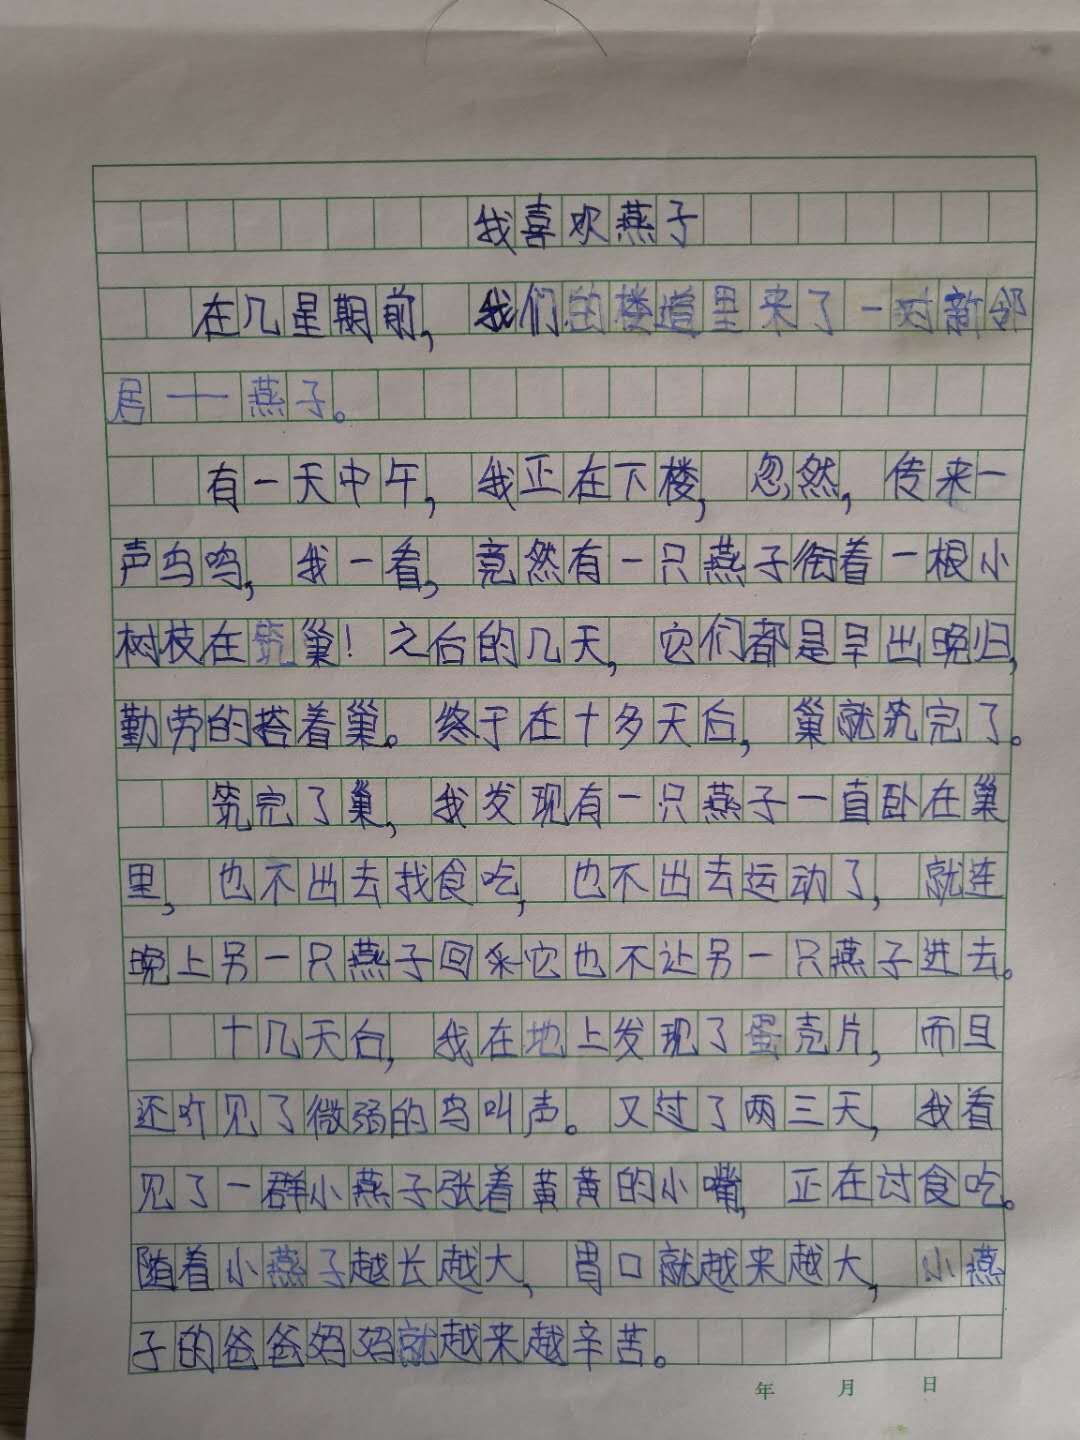 我喜欢燕子
在几星期前，我们的楼道里来了一对新邻
居——燕子。
有一天中午，我正在下楼，忽然，传来一
声鸟鸣，我一看，竟然有一只燕子衔着一根小
树枝在筑巢！之后的几天，它们都是早出晚归，
勤劳的搭着巢。终于在十多天后，巢就筑完了。
筑完了巢，我发现有一只燕子一直卧在巢
里，也不出去找食吃，也不出去运动了，就连
晚上另一只燕子回来它也不让另一只燕子进去。
十几天后，我在地上发现了蛋壳片，而且
还听见了微弱的鸟叫声。又过了两三天，我看
见了一群小燕子张着黄黄的小嘴，正在讨食吃。
随着小燕子越长越大，胃口就越来越大，小燕
子的爸爸妈妈就越来越辛苦。
年 月 日